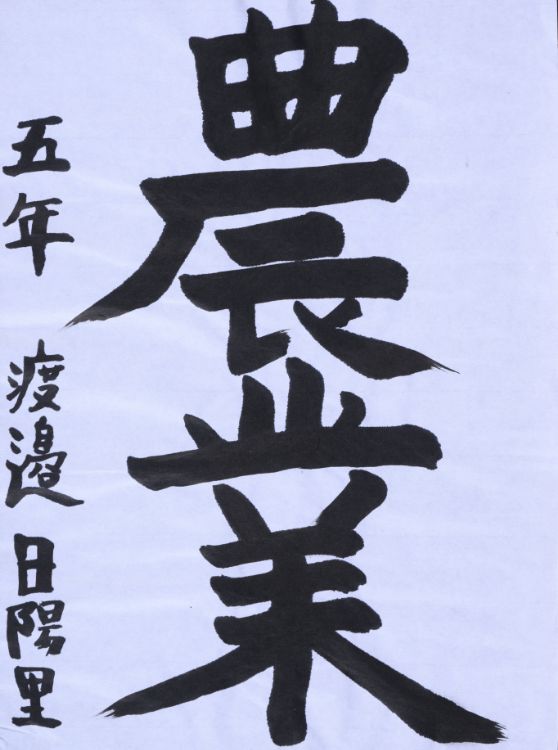 農業
五年 渡邉 日陽里